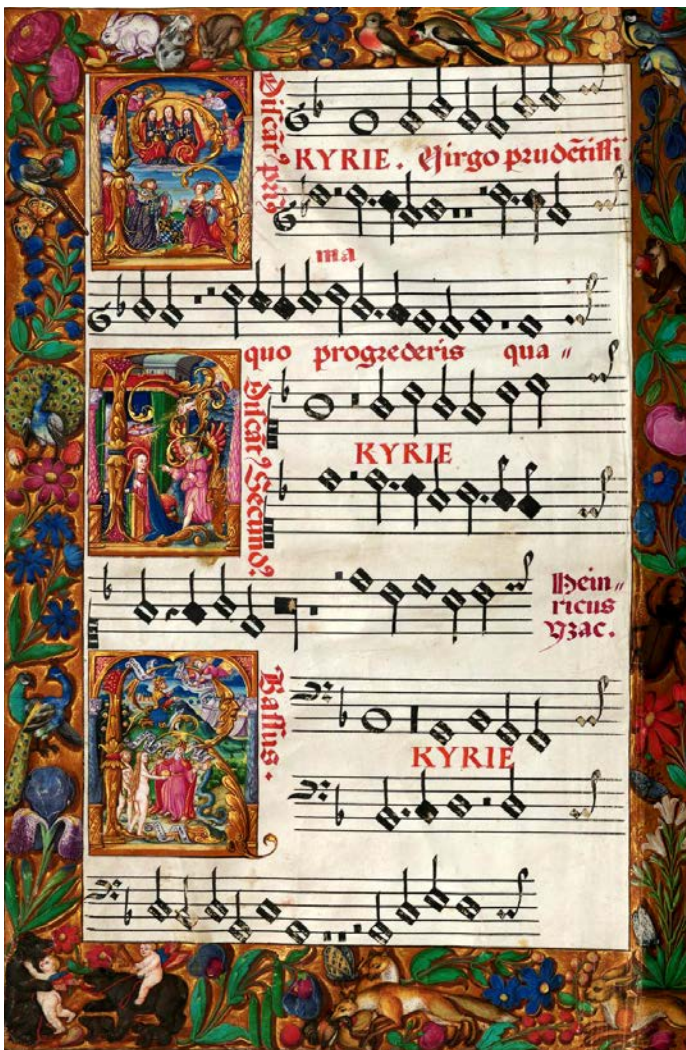 Discāt⁹ prı⁹
KYRIE. Virgo prudētissi
ma
quo progrederis qua〃
Discāt⁹ Secund⁹.
KYRIE
Hein〃
ricus
Yzac.
Bassus.
KYRIE